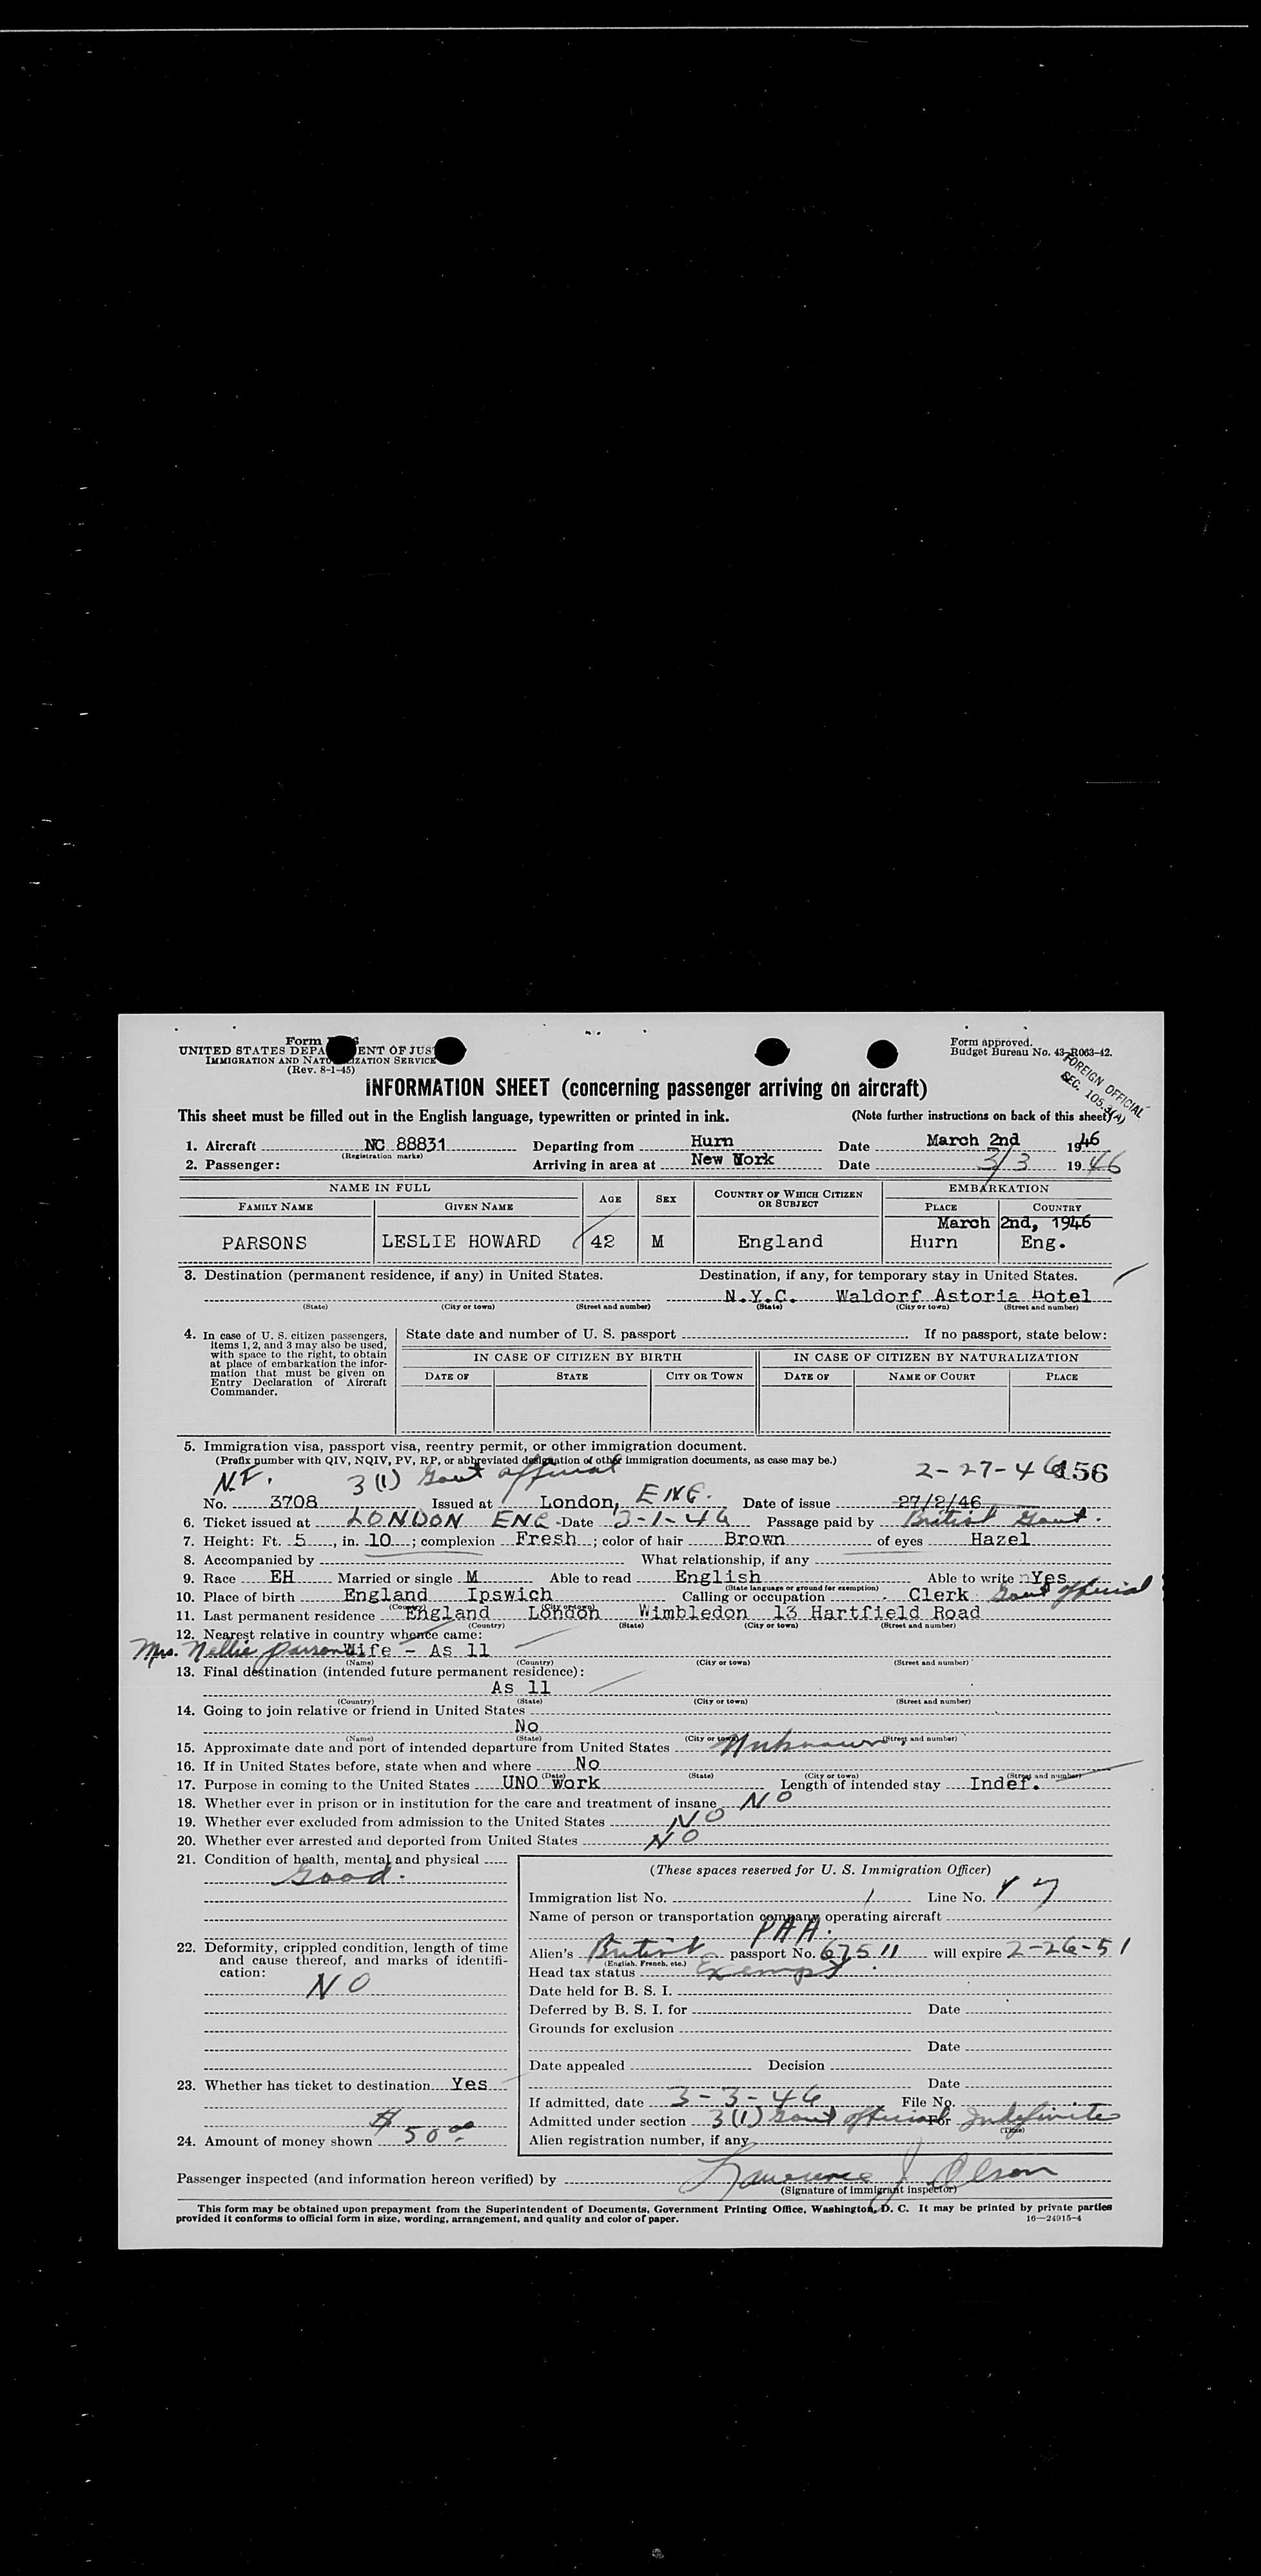 Form
UNITED STATES DEPA ENT OF JUS
IMMIGRATION AND NATU IZATION SERVICE
(Rev. 8-1-45)
Form approved.
Budget Bureau No. 43-R063-42.
FOREIGN OFFICIAL
SEC. 105.3(A)
INFORMATION SHEET (concerning passenger arriving on aircraft)
This sheet must be filled out in the English language, typewritten or printed in ink. (Note further instructions on back of this sheet)
1. Aircraft NC 88831 Departing from Hurn Date March 2nd 1946
(Registration marks)
2. Passenger: Arriving in area at New York Date 3/3 1946
NAME IN FULL AGE SEX COUNTRY OF WHICH CITIZEN OR SUBJECT EMBARKATION
FAMILY NAME GIVEN NAME PLACE COUNTRY
March 2nd, 1946
PARSONS LESLIE HOWARD 42 M England Hurn Eng.
3. Destination (permanent residence, if any) in United States. Destination, if any, for temporary stay in United States.
N.Y.C. Waldorf Astoria Hotel
(State) (City or town) (Street and number) (State) (City or town) (Street and number)
4. In case of U. S. citizen passengers, items 1, 2, and 3 may also be used, with space to the right, to obtain at place of embarkation the information that must be given on Entry Declaration of Aircraft Commander.
State date and number of U. S. passport If no passport, state below:
IN CASE OF CITIZEN BY BIRTH IN CASE OF CITIZEN BY NATURALIZATION
DATE OF STATE CITY OR TOWN DATE OF NAME OF COURT PLACE
5. Immigration visa, passport visa, reentry permit, or other immigration document.
(Prefix number with QIV, NQIV, PV, RP, or abbreviated designation of other immigration documents, as case may be.)
3(1) Govt official 2-27-46 156
No. 3708 Issued at London, ENG. Date of issue 27/2/46
6. Ticket issued at LONDON ENG Date 3-1-46 Passage paid by British Govt.
7. Height: Ft. 5, in. 10; complexion Fresh; color of hair Brown of eyes Hazel
8. Accompanied by What relationship, if any
9. Race EH Married or single M Able to read English Able to write Yes
(State language or ground for exemption)
10. Place of birth England Ipswich Calling or occupation Clerk Govt official
(Country) (City or town)
11. Last permanent residence England London Wimbledon 13 Hartfield Road
(Country) (State) (City or town) (Street and number)
12. Nearest relative in country whence came:
Mrs. Nellie Parsons Wife - As 11
(Name) (Country) (City or town) (Street and number)
13. Final destination (intended future permanent residence):
As 11
(Country) (State) (City or town) (Street and number)
14. Going to join relative or friend in United States
No
(Name) (State) (City or town) (Street and number)
15. Approximate date and port of intended departure from United States Unknown
16. If in United States before, state when and where No
(Date) (State) (City or town) (Street and number)
17. Purpose in coming to the United States UNO Work Length of intended stay Indef.
18. Whether ever in prison or in institution for the care and treatment of insane NO
19. Whether ever excluded from admission to the United States NO
20. Whether ever arrested and deported from United States NO
21. Condition of health, mental and physical
Good.
22. Deformity, crippled condition, length of time and cause thereof, and marks of identification:
NO
23. Whether has ticket to destination Yes
24. Amount of money shown $50.00
(These spaces reserved for U. S. Immigration Officer)
Immigration list No. 1 Line No. 17
Name of person or transportation company operating aircraft
PAA.
Alien's British passport No. 67511 will expire 2-26-51
(English, French, etc.)
Head tax status Exempt.
Date held for B. S. I.
Deferred by B. S. I. for Date
Grounds for exclusion
Date
Date appealed Decision
Date
If admitted, date 3-3-46 File No.
Admitted under section 3(1) Govt official For Indefinite
(Time)
Alien registration number, if any
Passenger inspected (and information hereon verified) by Lawrence J Olson
(Signature of immigrant inspector)
This form may be obtained upon prepayment from the Superintendent of Documents, Government Printing Office, Washington, D. C. It may be printed by private parties
provided it conforms to official form in size, wording, arrangement, and quality and color of paper. 16—24915-4